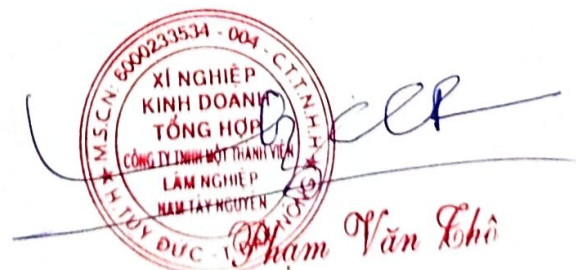 M.S.C.N: 6000233534 - 004 - C.T.T.N.H.H
XÍ NGHIỆP
KINH DOANH
TỔNG HỢP
CÔNG TY TNHH MỘT THÀNH VIÊN
LÂM NGHIỆP
NAM TÂY NGUYÊN
H. TUY ĐỨC - T. ĐĂK NÔNG
Phạm Văn Thô